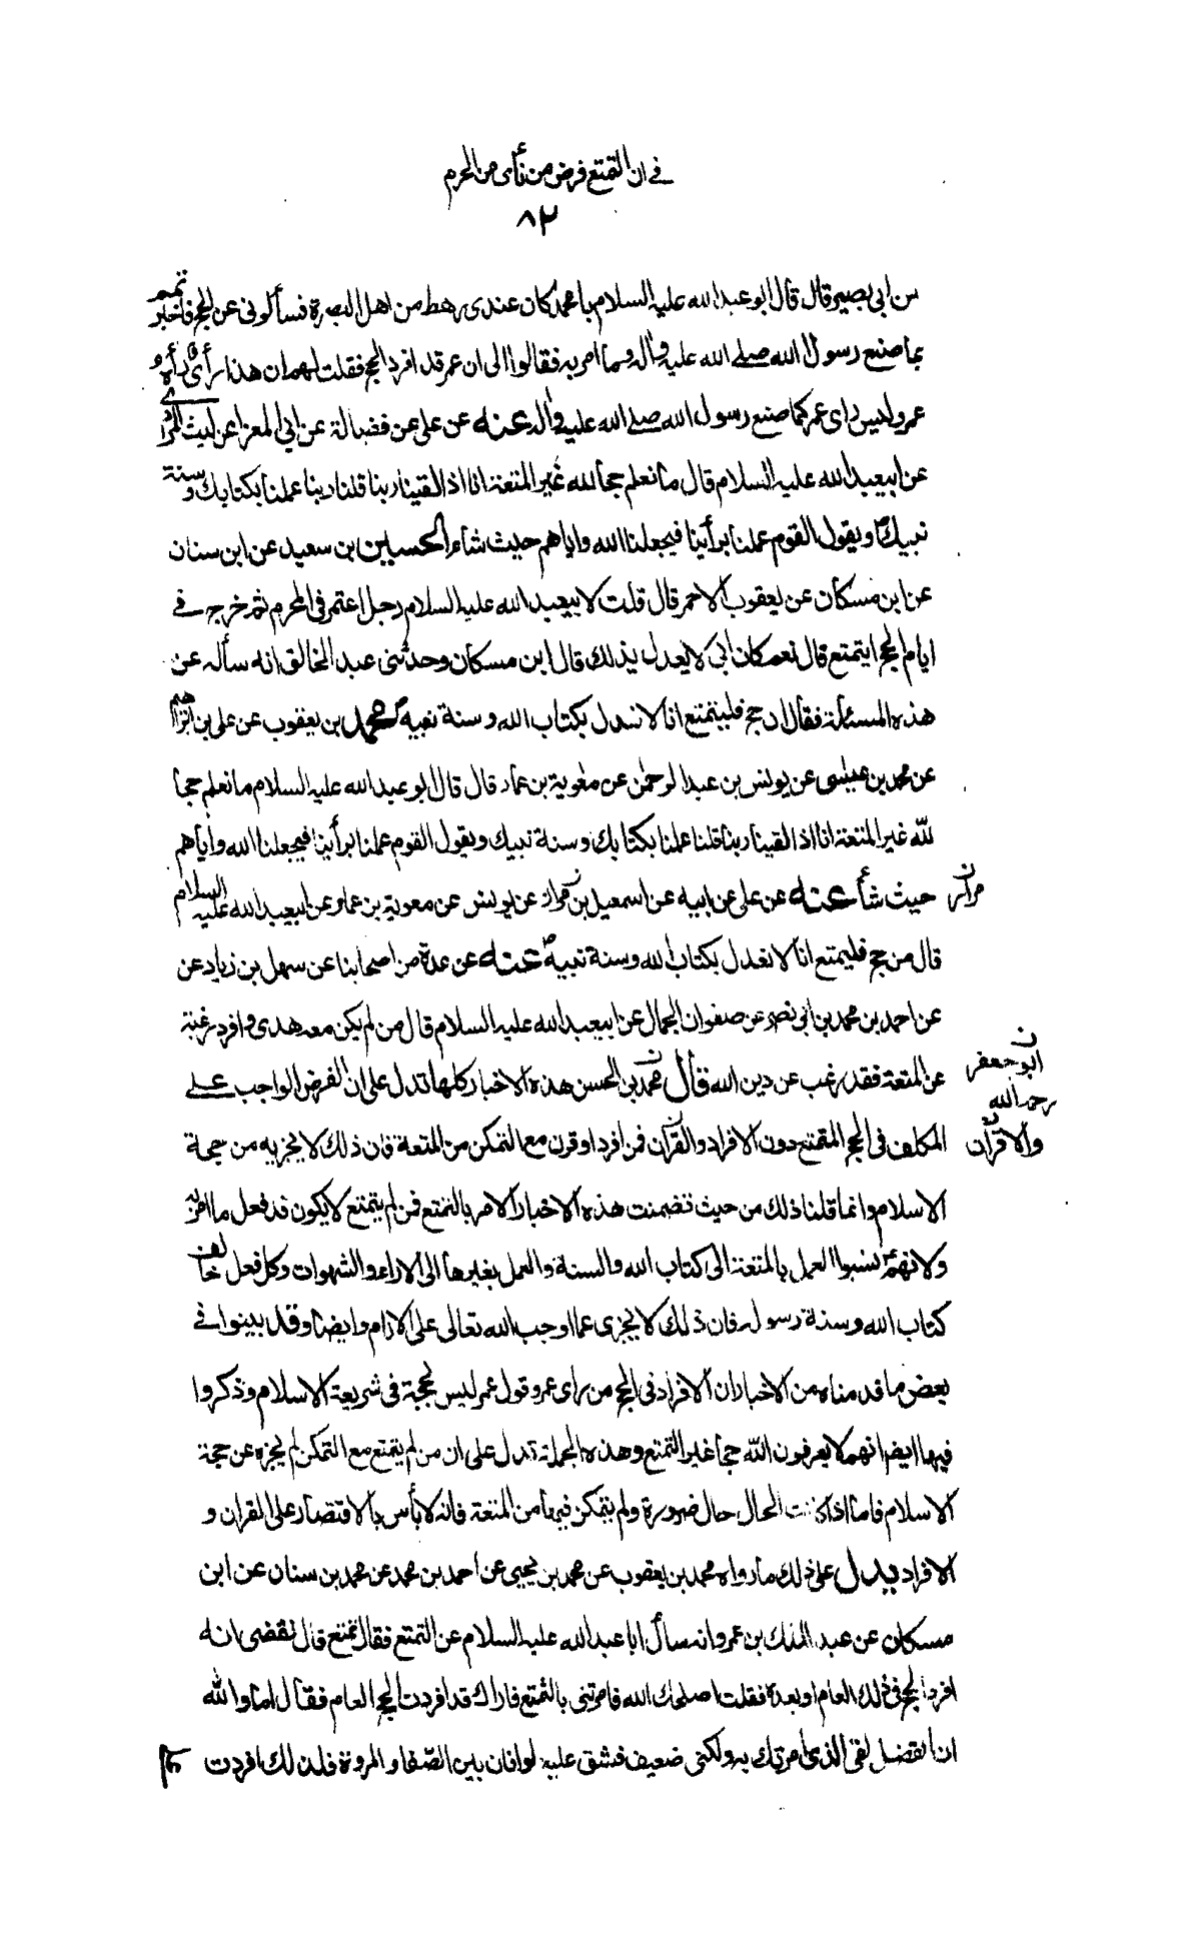 في ان التمتع فرض من نأى من الحرم
٨٢
من ابي بصير قال قال ابو عبد الله عليه السلام يا محمد كان عندي رهط من اهل البصرة فسألوني عن الحج فاخبرتهم
بما صنع رسول الله صلى الله عليه وآله وبما امر به فقالوا لي ان عمر قد افرد الحج فقلت لهم ان هذا رأي رآه
عمر وليس راى عمر كما صنع رسول الله صلى الله عليه وآله عنه عن علي عن فضالة عن ابي المعزا عن ليث المرادي
عن ابيعبد الله عليه السلام قال ما نعلم حجا لله غير المتعة انا اذا لقينا ربنا قلنا ربنا عملنا بكتابك وسنة
نبيك ويقول القوم عملنا برأينا فيجعلنا الله واياهم حيث شاء الحسين بن سعيد عن ابن سنان
عن ابن مسكان عن يعقوب الاحمر قال قلت لابيعبد الله عليه السلام رجل اعتمر في المحرم ثم خرج في
ايام الحج ايتمتع قال نعم كان ابي لا يعدل بذلك قال ابن مسكان وحدثني عبد الخالق انه سأله عن
هذه المسئلة فقال ان حج فليتمتع انا لا نعدل بكتاب الله وسنة نبيه محمد بن يعقوب عن علي بن ابراهيم
عن محمد بن عيسى عن يونس بن عبد الرحمن عن معوية بن عمار قال قال ابو عبد الله عليه السلام ما نعلم حجا
لله غير المتعة انا اذا لقينا ربنا قلنا عملنا بكتابك وسنة نبيك ويقول القوم عملنا برأينا فيجعلنا الله واياهم
حيث شأ عنه عن علي عن ابيه عن اسمعيل بن مرار عن يونس عن معوية بن عمار عن ابيعبد الله عليه السلام
مرار ن
قال من حج فليتمتع انا لا نعدل بكتاب الله وسنة نبيه عنه عن عدة من اصحابنا عن سهل بن زياد عن
عن احمد بن محمد بن ابي نصر عن صفوان الجمال عن ابيعبد الله عليه السلام قال من لم يكن معه هدى وافرد رغبة
عن المتعة فقد رغب عن دين الله قال محمد بن الحسن هذه الاخبار كلها تدل على ان الفرض الواجب على
ابو جعفر ن
رحمه الله
المكلف في الحج التمتع دون الافراد والقران فمن افرد او قرن مع التمكن من المتعة فان ذلك لا يجزيه من حجة
والاقران ن
الاسلام وانما قلنا ذلك من حيث تضمنت هذه الاخبار الامر بالتمتع فمن لم يتمتع لا يكون قد فعل ما امر به
ولانهم نسبوا العمل بالمتعة الى كتاب الله والسنة والعمل بغيرها الى الاراء والشهوات وكل فعل خالف
كتاب الله وسنة رسوله فان ذلك لا يجزي عما اوجب الله تعالى على الانام وايضا وقد بينوا في
بعض ما قدمناه من الاخبار ان الافراد في الحج من راى عمر وقول عمر ليس بحجة في شريعة الاسلام وذكروا
فيها ايضا انهم لا يعرفون لله حجا غير التمتع وهذه الجملة تدل على ان من لم يتمتع مع التمكن لم يجزه عن حجة
الاسلام فاما اذا كانت الحال حال ضرورة ولم يتمكن فيها من المتعة فانه لا بأس بالاقتصار على القران و
الافراد يدل على ذلك ما رواه محمد بن يعقوب عن محمد بن يحيى عن احمد بن محمد عن محمد بن سنان عن ابن
مسكان عن عبد الملك بن عمرو انه سأل ابا عبد الله عليه السلام عن التمتع فقال تمتع قال فقضى انه
افرد الحج في ذلك العام او بعده فقلت اصلحك الله فامرتني بالتمتع فاراك قد افردت الحج العام فقال اما والله
ان الفضل لفي الذي امرتك به ولكني ضعيف فشق عليه طوافان بين الصفا والمروة فلذلك افردت